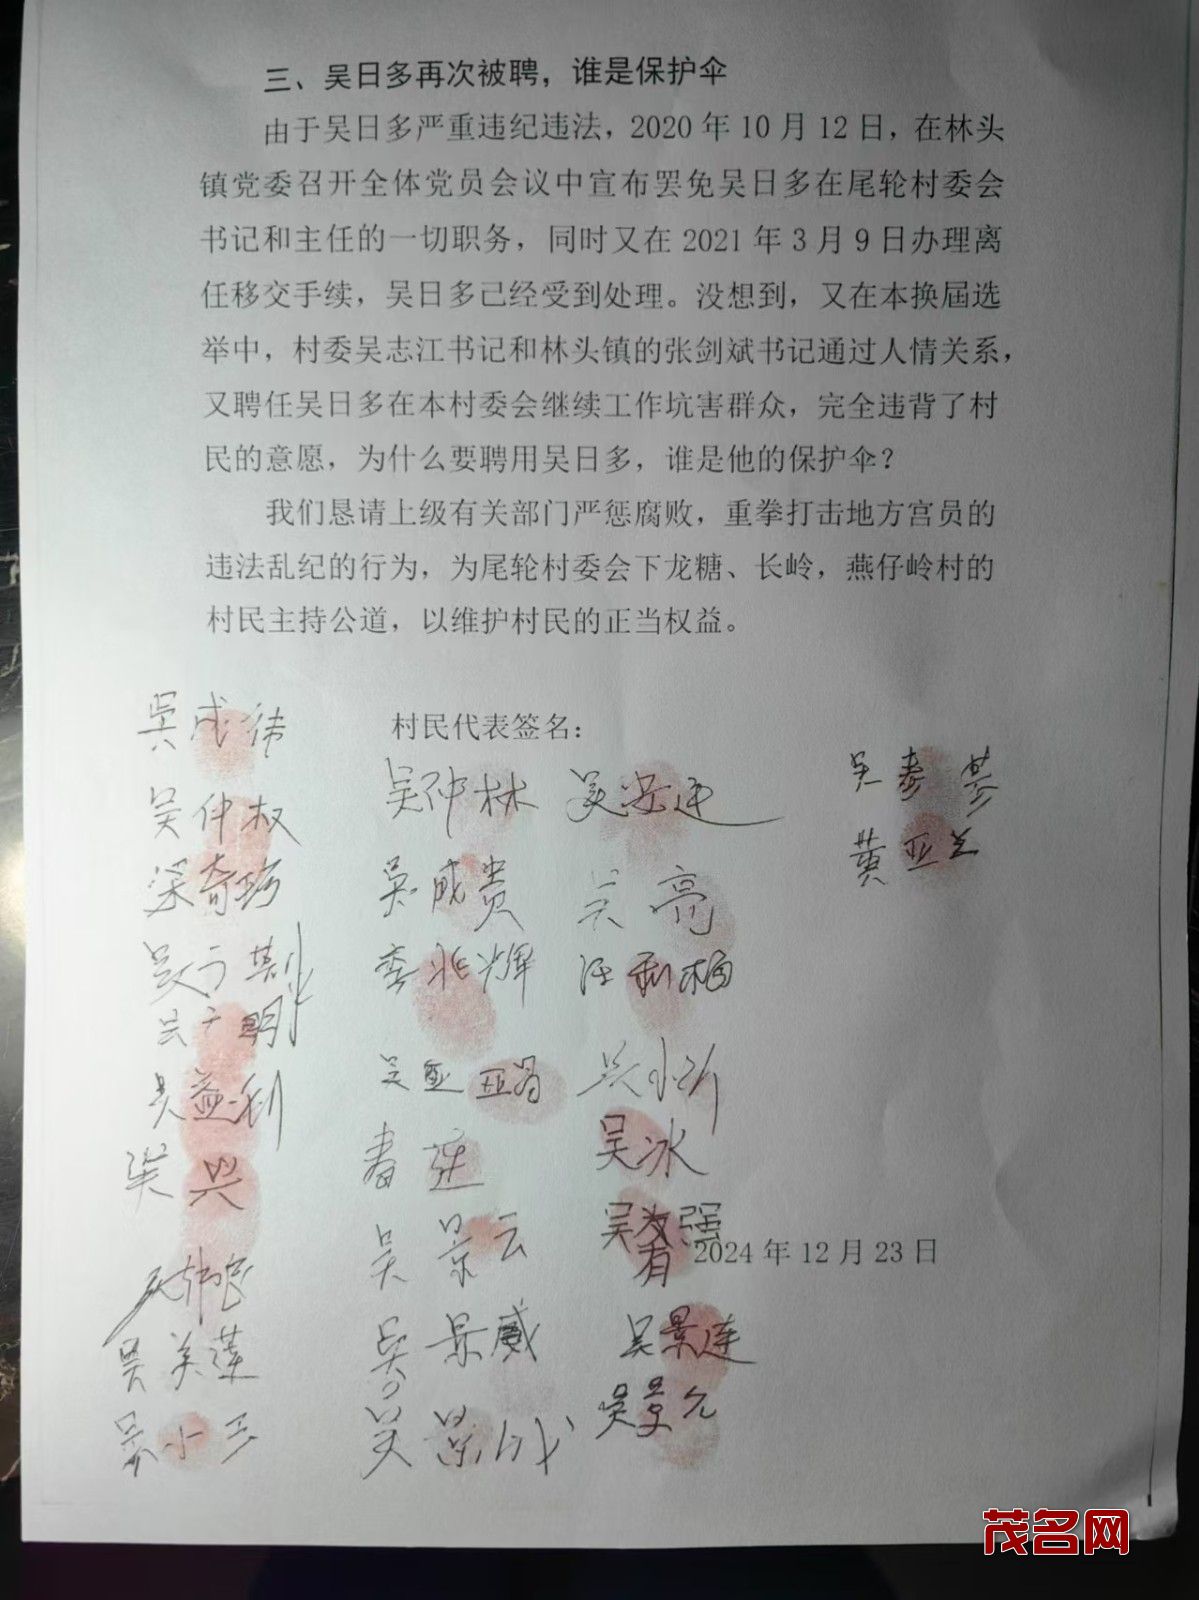 三、吴日多再次被聘，谁是保护伞
由于吴日多严重违纪违法，2020年10月12日，在林头
镇党委召开全体党员会议中宣布罢免吴日多在尾轮村委会
书记和主任的一切职务，同时又在2021年3月9日办理离
任移交手续，吴日多己经受到处理。没想到，又在本换届选
举中，村委吴志江书记和林头镇的张剑斌书记通过人情关系，
又聘任吴日多在本村委会继续工作坑害群众，完全违背了村
民的意愿，为什么要聘用吴日多，谁是他的保护伞？
我们恳请上级有关部门严惩腐败，重拳打击地方宫员的
违法乱纪的行为，为尾轮村委会下龙糖、长岭，燕仔岭村的
村民主持公道，以维护村民的正当权益。
村民代表签名：
吴仲林
吴仲权
黄亚兰
吴成贵
吴亮
吴益利
吴冰
吴景云
2024年12月23日
吴景威
吴景连
吴美莲
吴小三
茂名网